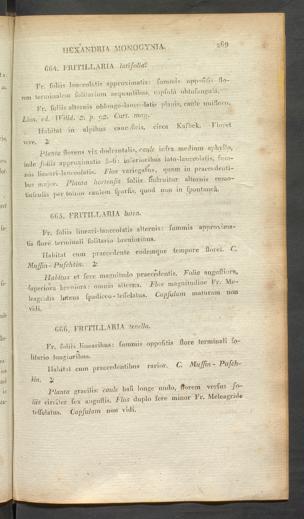 HEXANDRIA MONOGYNIA. 269
664. FRITILLARIA latifolia.
Fr. foliis lanceolatis approximatis: summis oppositis flo-
rem terminalem solitarium aequantibus, capsula obtusangula.
Fr. foliis alternis oblongo-lanceolatis planis, caule unifloro,
Linn. ed. Willd. 2. p. 92. Curt. mag.
Habitat in alpibus caucasicis, circa Kasbek. Floret
vere. ♃
Planta florens vix dodrantalis, caule infra medium aphyllo,
inde foliis approximatis 5-6: inferioribus lato-lanceolatis, sum-
mis lineari-lanceolatis. Flos variegatus, quam in praecedenti-
bus major. Planta hortensis foliis alternis
per totum caulem sparsis, quod non in spontanea.
665. FRITILLARIA lutea.
Fr. foliis lineari-lanceolatis alternis: summis approxima-
tis flore terminali solitario brevioribus.
Habitat cum praecedente eodemque tempore floret. C.
Mussin-Puschkin. ♃
Habitus et fere magnitudo praecedentis. Folia angustiora,
superiora breviora: omnia alterna. Flos magnitudine Fr. Me-
leagridis luteus spadiceo-tesselatus. Capsulam maturam non
vidi.
666. FRITILLARIA tenella.
Fr. foliis linearibus: summis oppositis flore terminali so-
litario longioribus.
Habitat cum praecedentibus rarior. C. Mussin-Pusch-
kin. ♃
Planta gracilis: caule basi longe nudo, florem versus fo-
liis circiter sex angustis. Flos duplo fere minor Fr. Meleagride
tesselatus. Capsulam non vidi.